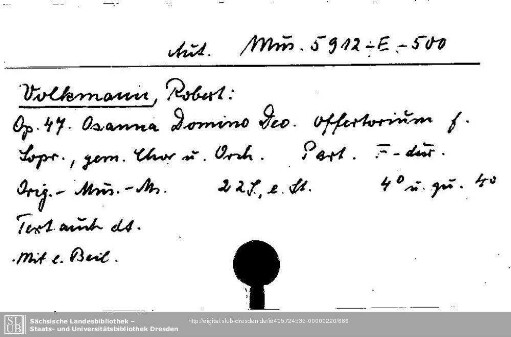 Aut. Mus. 5912-E-500
Volkmann, Robert:
Op. 47. Osanna Domino Deo. Offertorium f.
Sopr., gem. Chor u. Orch. Part. F-dur.
Orig.-Mus.-Ms. 22 S., e. St. 4° u. qu. 4°
Text auch dt.
Mit e. Beil.
SLUB
Sächsische Landesbibliothek –
Staats- und Universitätsbibliothek Dresden